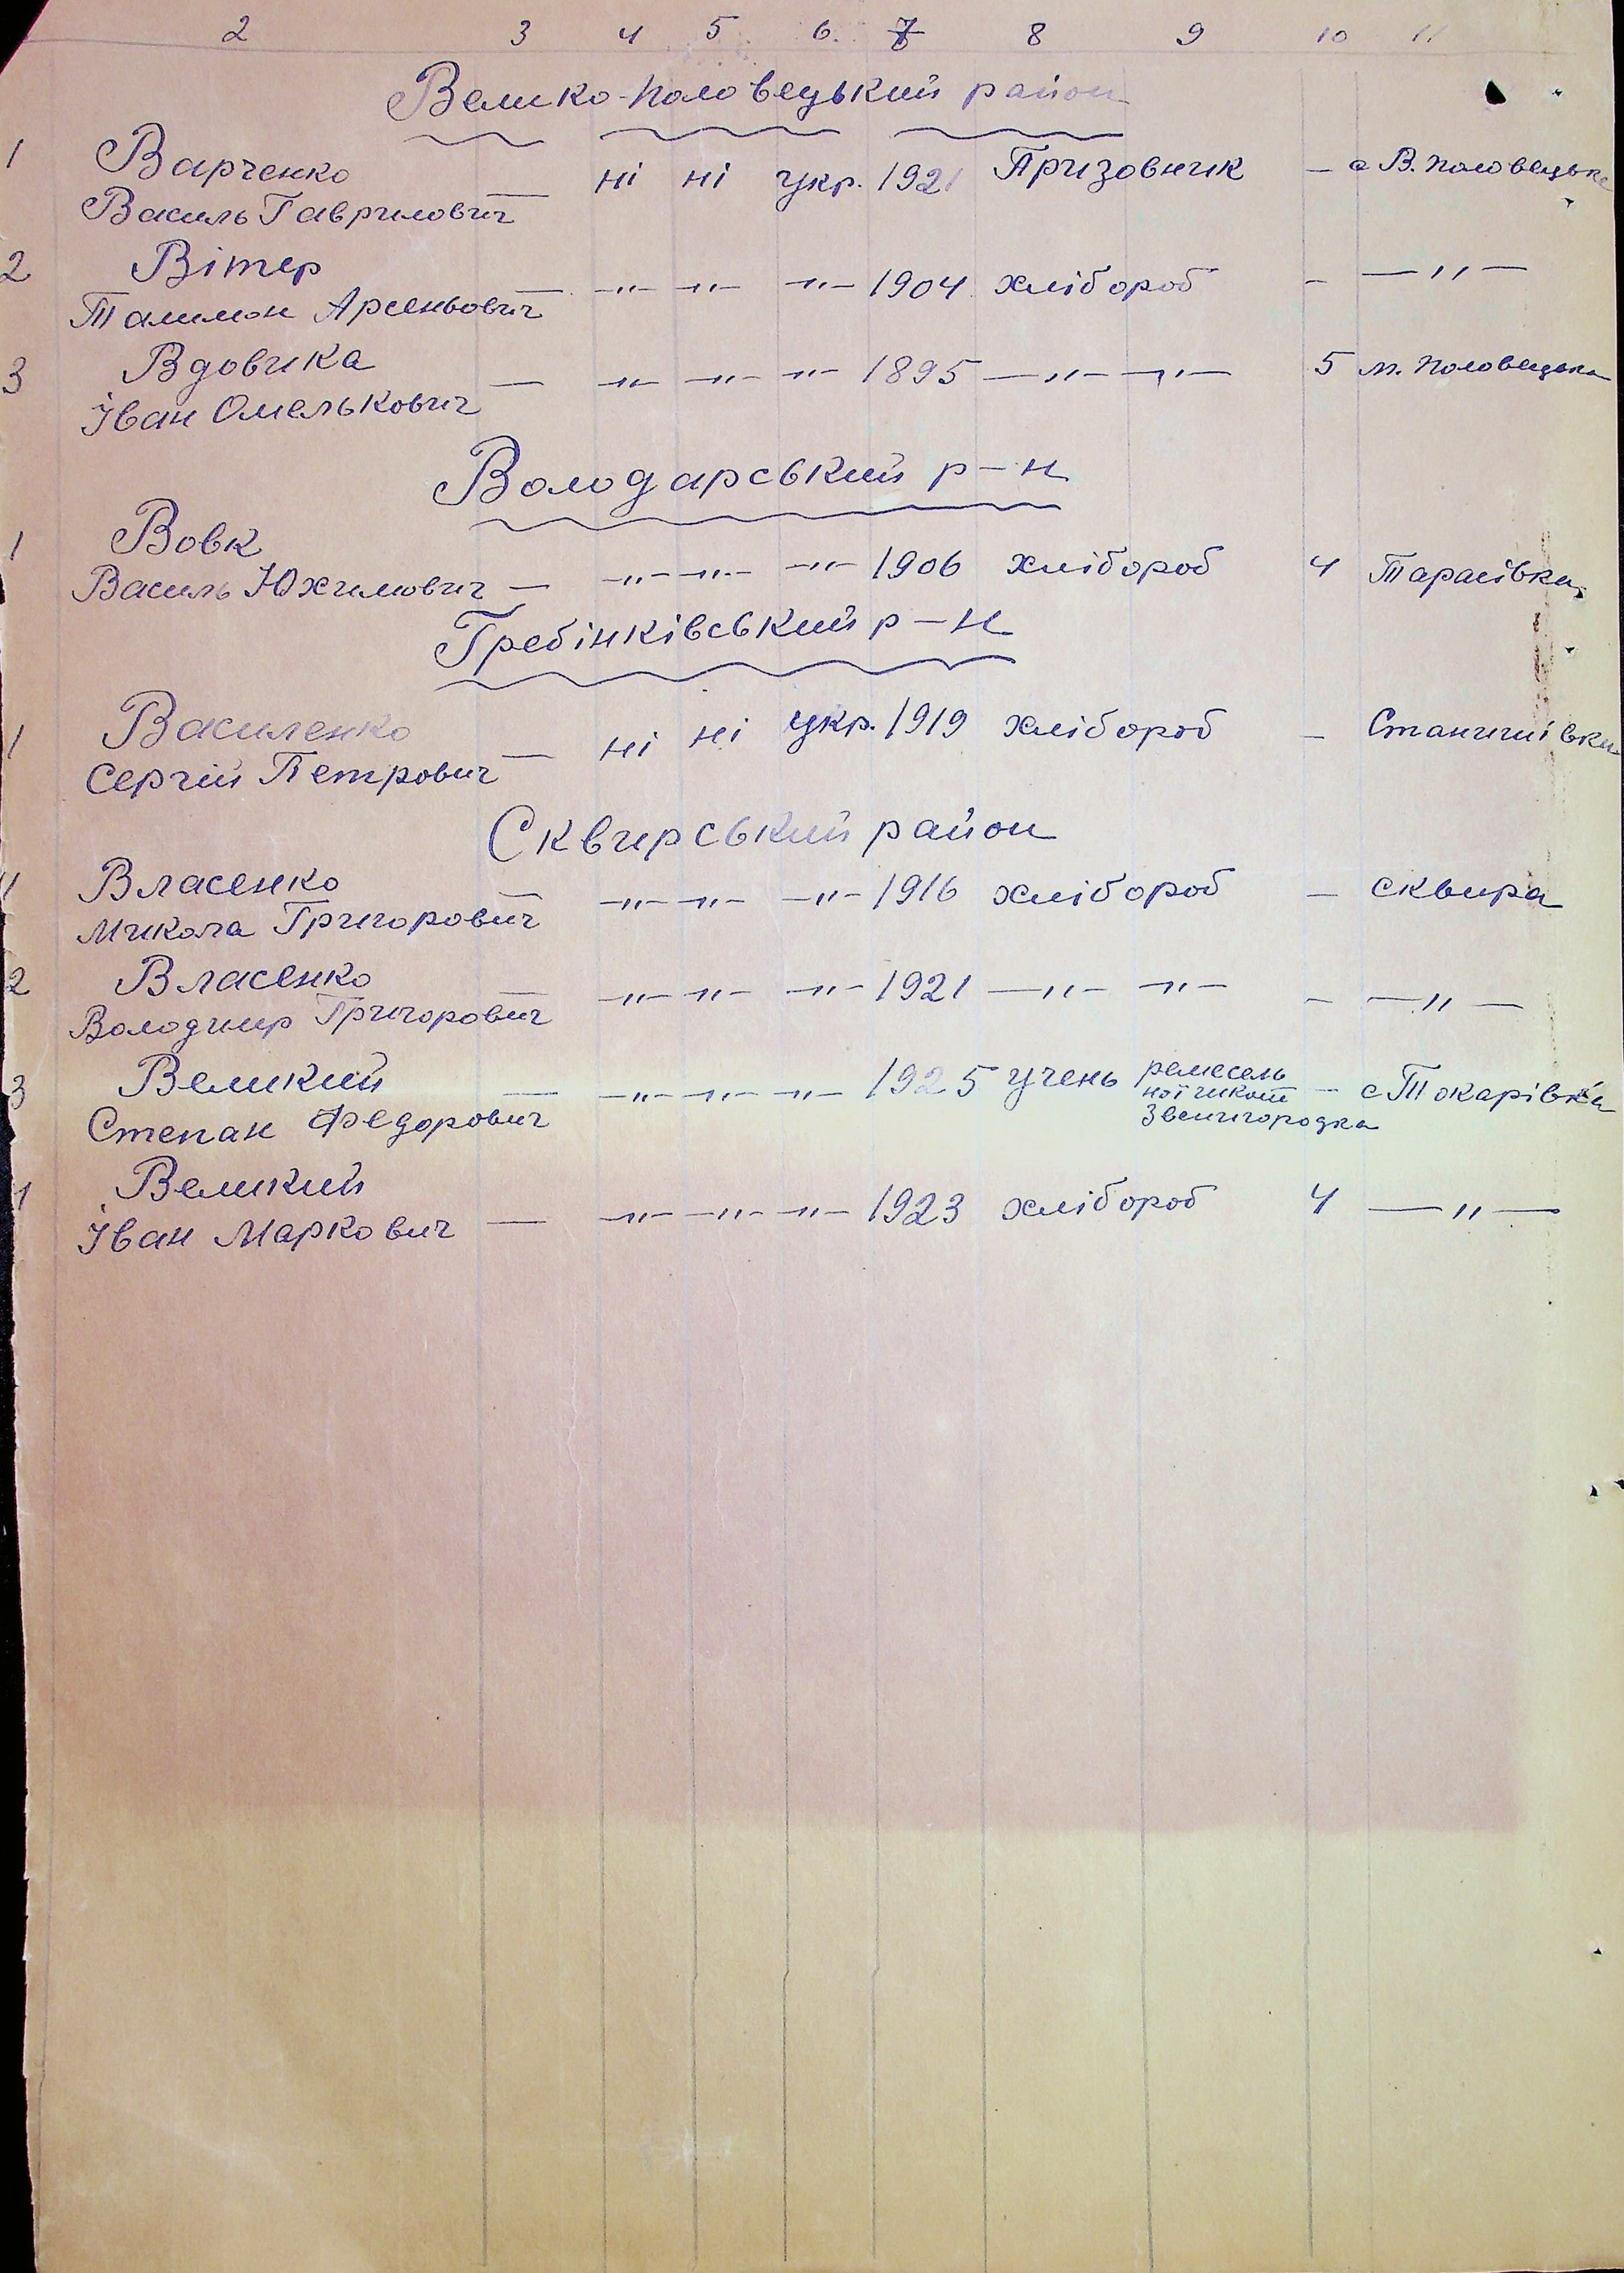 2 3 4 5 6. 7 8 9 10 11
Велико-Половецький район
1 Варченко
Василь Гаврилович — ні ні укр. 1921 Призовник — с В. Половецьке
2 Вітер
Талимон Арсеньович — —"— —"— —"— 1904 хлібороб — —"—
3 Вдовика
Іван Омелькович — —"— —"— —"— 1895 —"— —"— 5 м. Половецька
Володарський р-н
1 Вовк
Василь Юхимович — —"— —"— —"— 1906 хлібороб 4 Тарасівка
Гребінківський р-н
1 Василенко
Сергій Петрович — ні ні укр. 1919 хлібороб — Станишівка
Сквирський район
1 Власенко
Микола Григорович — —"— —"— —"— 1916 хлібороб — Сквира
2 Власенко
Володимир Григорович — —"— —"— —"— 1921 —"— —"— — —"—
3 Великий
Степан Федорович — —"— —"— —"— 1925 учень ремесель
ної школи — с Токарівка
Звенигородка
1 Великий
Іван Маркович — —"— —"— —"— 1923 хлібороб 4 —"—